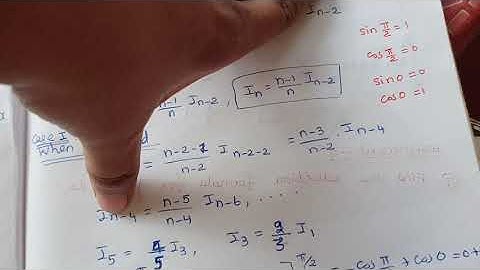 I n-2
sin π/2 = 1
cos π/2 = 0
sin 0 = 0
cos 0 = 1
n-1/n I n-2 , I n = n-1/n I n-2
case I
When
= n-2-1/n-2 I n-2-2 = n-3/n-2 . I n-4
I n-4 = n-5/n-4 I n-6 , . . . .
I 5 = 4/5 I 3 , I 3 = 2/3 I 1
π/2
= cos π/2 + cos 0 = 0 +